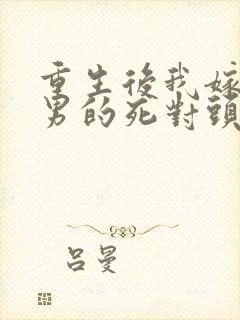 重生後我嫁
男的死對頭
吕曼